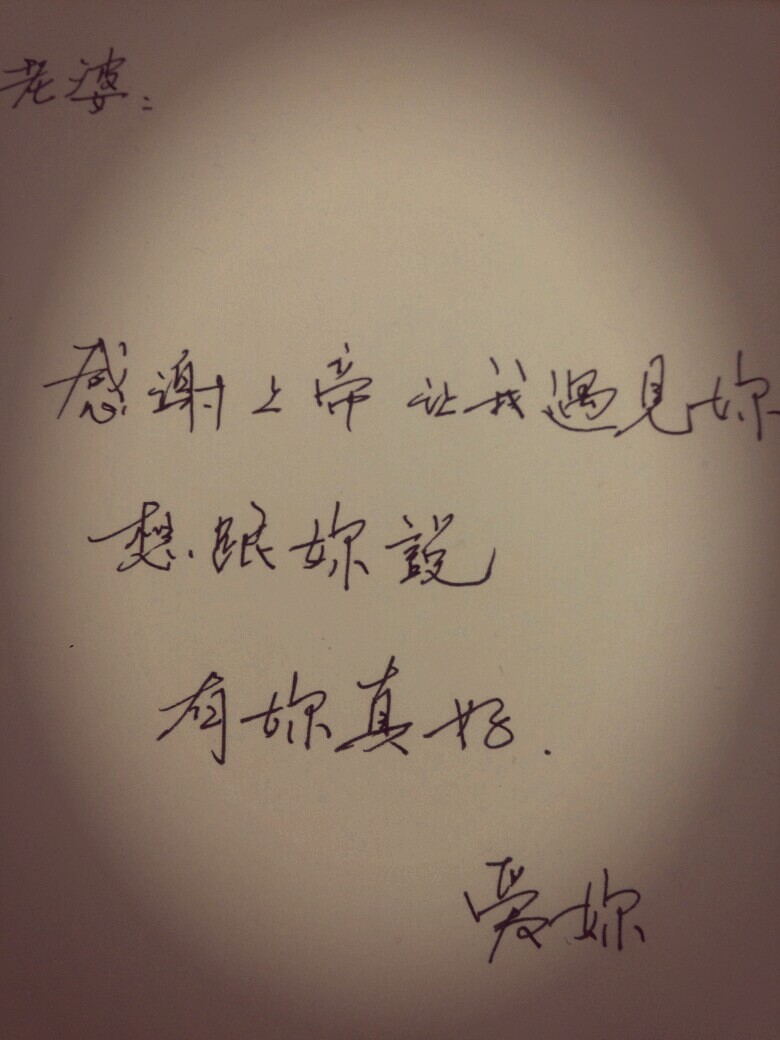 老婆：
感謝上帝 让我遇見妳
想跟妳說
有妳真好.
愛妳